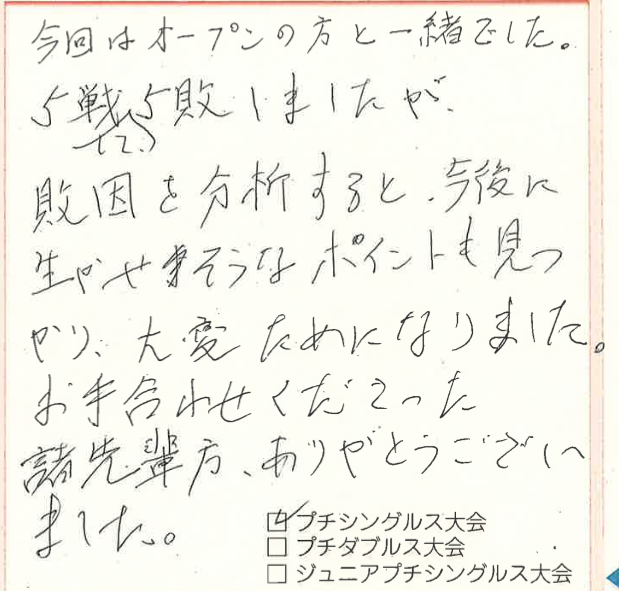 今回はオープンの方と一緒でした。
5戦して5敗しましたが、
敗因を分析すると、今後に
生かせそうなポイントも見つ
かり、大変ためになりました。
お手合わせくださった
諸先輩方、ありがとうござい
ました。
☑ プチシングルス大会
□ プチダブルス大会
□ ジュニアプチシングルス大会